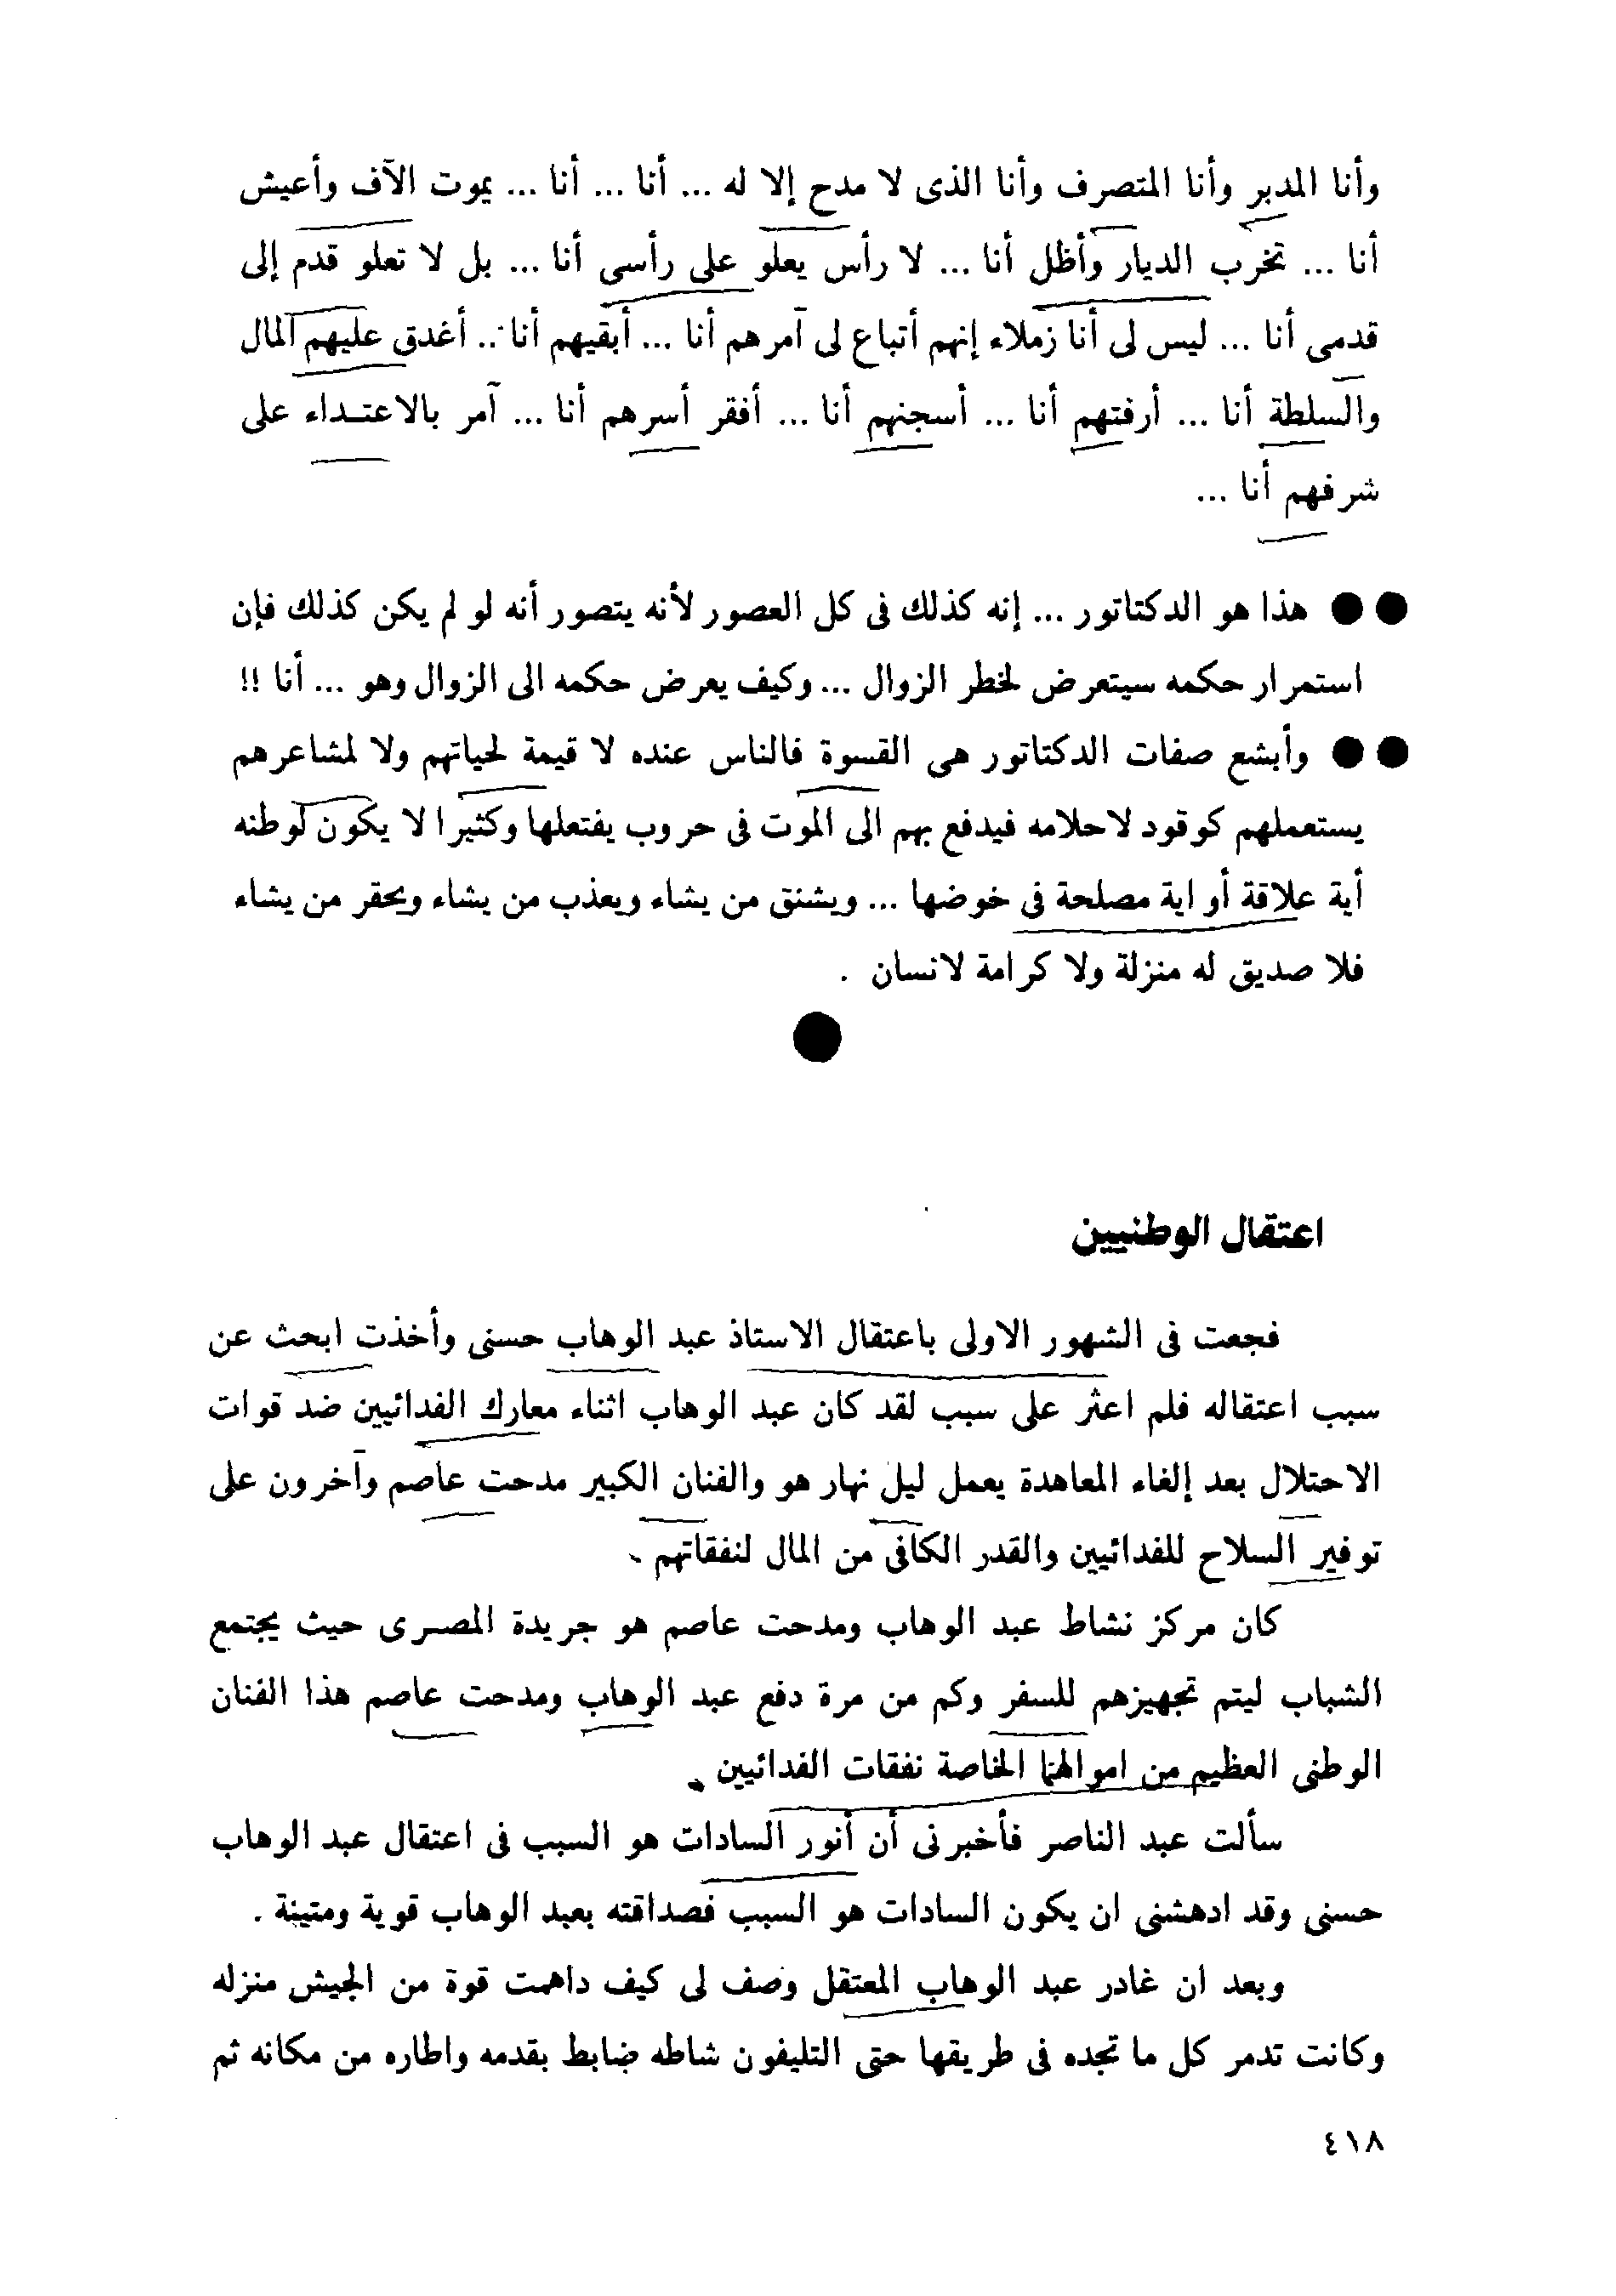 وأنا المدبر وأنا المتصرف وأنا الذى لا مدح إلا له ... أنا ... أنا ... يموت الآف وأعيش
أنا ... تخرب الديار وأظل أنا ... لا رأس يعلو على رأسى أنا ... بل لا تعلو قدم إلى
قدمى أنا ... ليس لى أنا زملاء إنهم أتباع لى آمرهم أنا ... أبقيهم أنا ... أغدق عليهم المال
والسلطة أنا ... أرفتهم أنا ... أسجنهم أنا ... أفقر أسرهم أنا ... آمر بالاعتداء على
شرفهم أنا ...
●● هذا هو الدكتاتور ... إنه كذلك فى كل العصور لأنه يتصور أنه لو لم يكن كذلك فإن
استمرار حكمه سيتعرض لخطر الزوال ... وكيف يعرض حكمه الى الزوال وهو ... أنا !!
●● وأبشع صفات الدكتاتور هى القسوة فالناس عنده لا قيمة لحياتهم ولا لمشاعرهم
يستعملهم كوقود لاحلامه فيدفع بهم الى الموت فى حروب يفتعلها وكثيرا لا يكون لوطنه
أية علاقة أو اية مصلحة فى خوضها ... ويشنق من يشاء ويعذب من يشاء ويحقر من يشاء
فلا صديق له منزلة ولا كرامة لانسان .
●
اعتقال الوطنيين
فجعت فى الشهور الاولى باعتقال الاستاذ عبد الوهاب حسنى وأخذت ابحث عن
سبب اعتقاله فلم اعثر على سبب لقد كان عبد الوهاب اثناء معارك الفدائيين ضد قوات
الاحتلال بعد إلغاء المعاهدة يعمل ليل نهار هو والفنان الكبير مدحت عاصم وآخرون على
توفير السلاح للفدائيين والقدر الكافى من المال لنفقاتهم .
كان مركز نشاط عبد الوهاب ومدحت عاصم هو جريدة المصرى حيث يجتمع
الشباب ليتم تجهيزهم للسفر وكم من مرة دفع عبد الوهاب ومدحت عاصم هذا الفنان
الوطنى العظيم من اموالهما الخاصة نفقات الفدائيين .
سألت عبد الناصر فأخبرنى أن أنور السادات هو السبب فى اعتقال عبد الوهاب
حسنى وقد ادهشنى ان يكون السادات هو السبب فصداقته بعبد الوهاب قوية ومتينة .
وبعد ان غادر عبد الوهاب المعتقل وصف لى كيف داهمت قوة من الجيش منزله
وكانت تدمر كل ما تجده فى طريقها حتى التليفون شاطه ضابط بقدمه واطاره من مكانه ثم
٤١٨